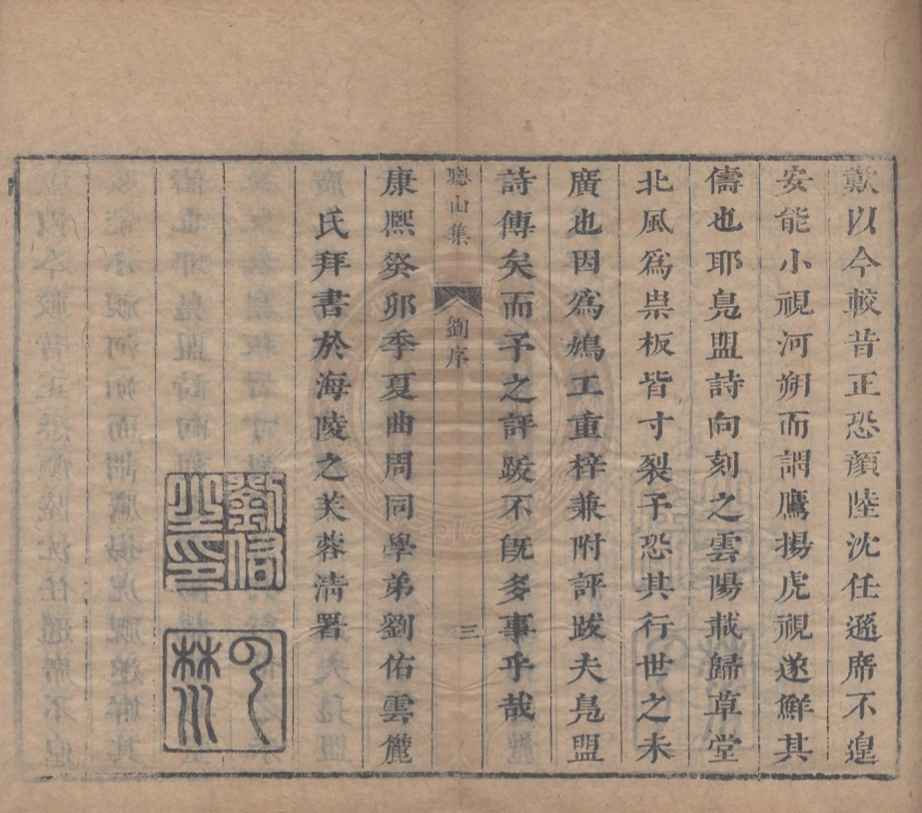 歎以今較昔正恐顏陸沈任遜席不遑
安能小視河朔而謂鷹揚虎視遂鮮其
儔也耶鳧盟詩向刻之雲陽載歸草堂
北風爲祟板皆寸裂予恐其行世之未
廣也因爲鳩工重梓兼附評跋夫鳧盟
詩傳矣而予之評跋不旣多事乎哉
聰山集
劉序
三
康熙癸卯季夏曲周同學弟劉佑雲麓
氏拜書於海陵之芙蓉清署
劉佑之印